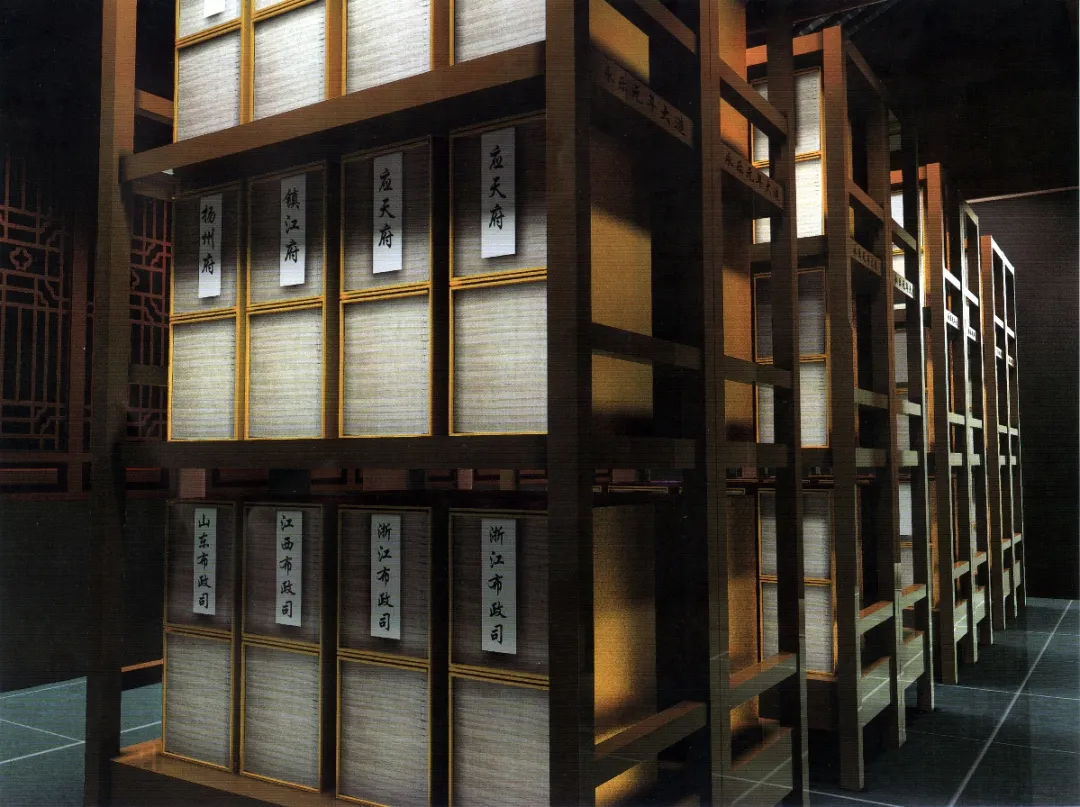 扬州府
镇江府
应天府
应天府
山东布政司
江西布政司
浙江布政司
浙江布政司
永乐元年大造
永乐元年大造